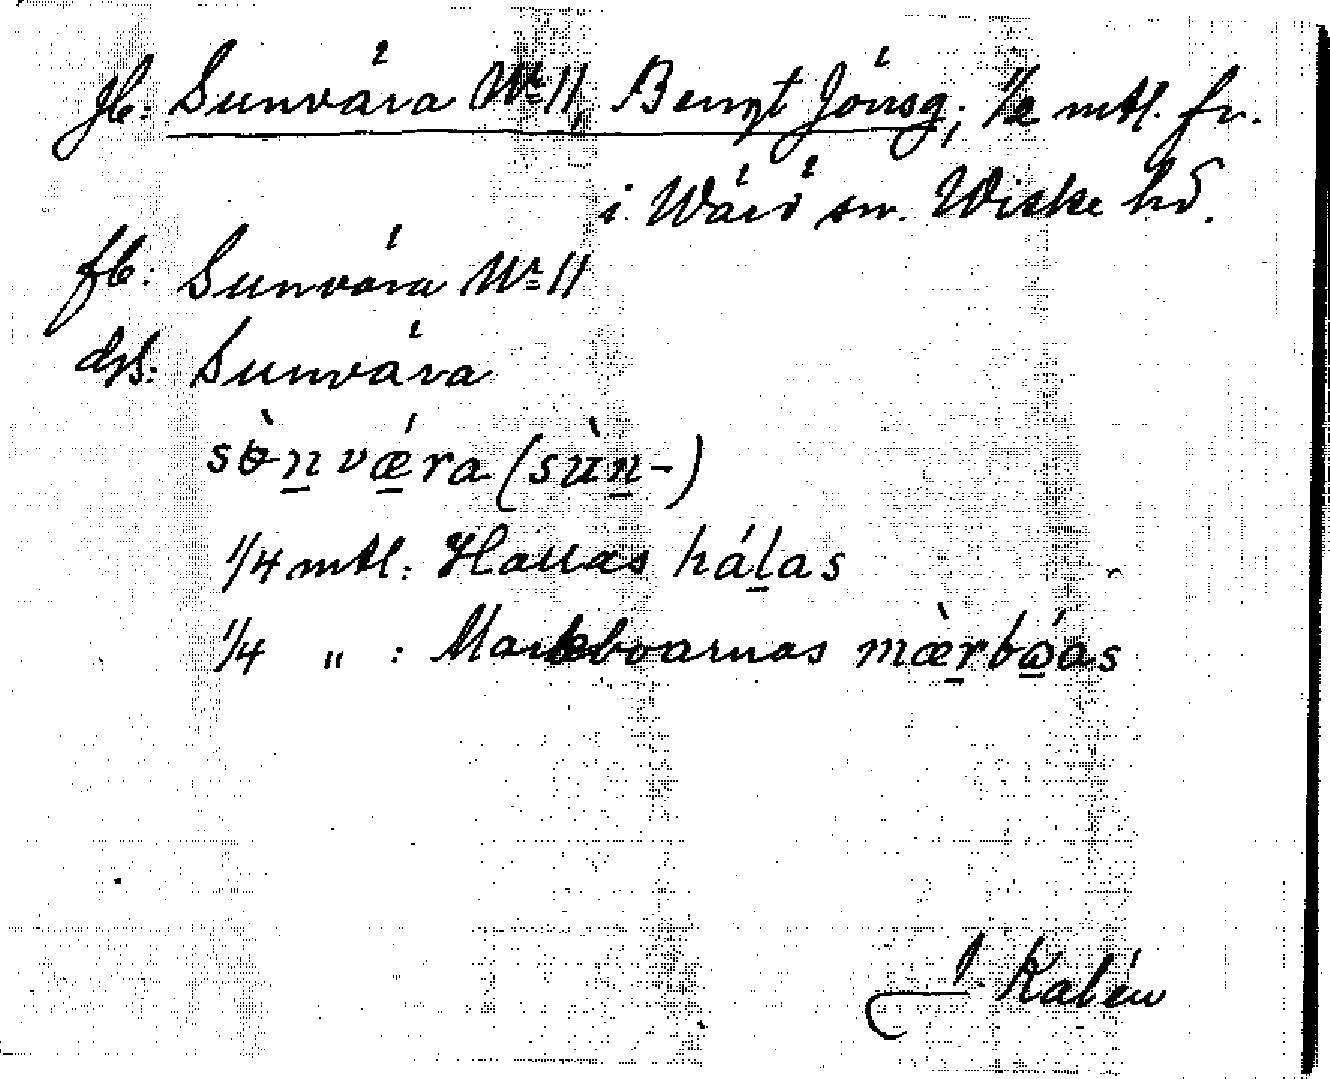 jb: Sunvära Nr 11, Bengt Jönsg; 1/2 mtl. fr.
i Wärö sn. Wiske hd.
fb: Sunvära Nr 11
dsb: Sunvära
sɵ̀n̠vǽ̠ra (sùn̠-)
1/4 mtl: Hallas hál̠as
1/4 " : Markboarnas mæ̀r̠bώ̠as
J. Kalén